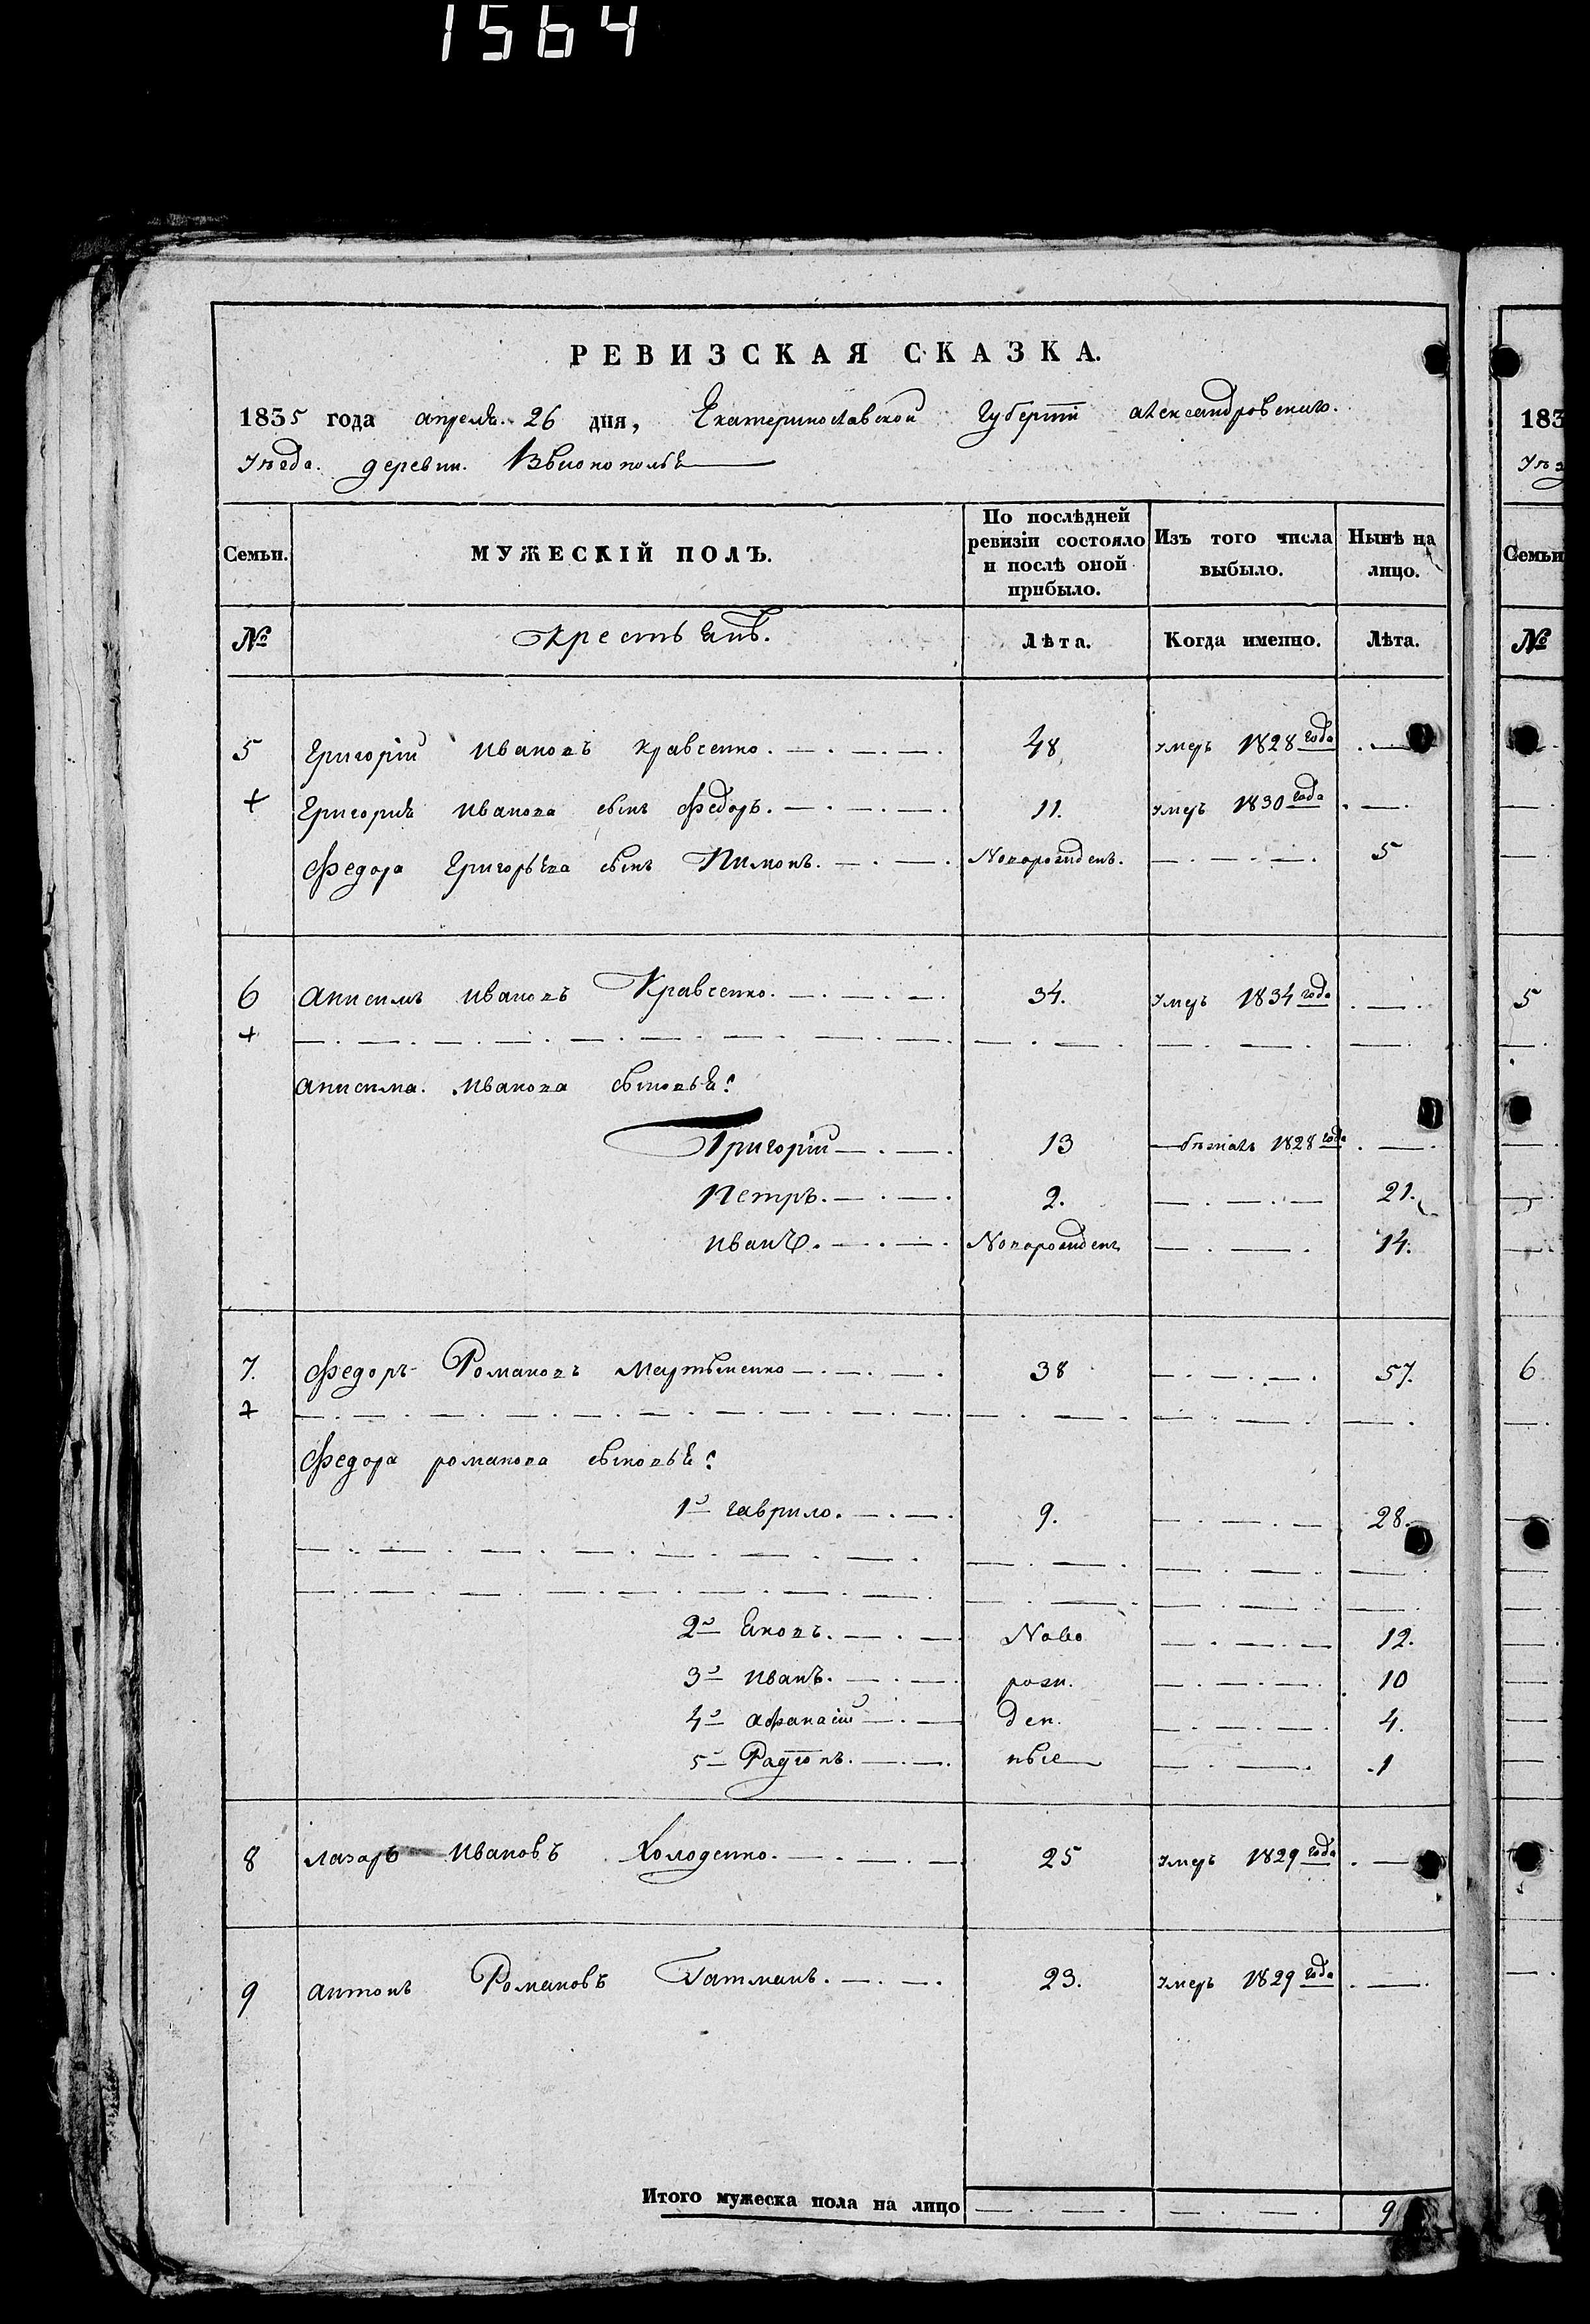 1564
РЕВИЗСКАЯ СКАЗКА.
1835 года апрѣля 26 дня, Екатеринославской Губерніи Александровскаго
уѣзда деревни
183
Семьи. МУЖЕСКІЙ ПОЛЪ. По послѣдней ревизіи состояло и послѣ оной прибыло. Изъ того числа выбыло. Нынѣ на лицо.
Семьи
№ Крестьянъ. Лѣта. Когда именно. Лѣта.
№
5 Григорій Ивановъ Кравченко. 48 умеръ 1828 года
+ Григорія Иванова сынъ Федоръ. 11. умеръ 1830 года
Федора Григорьева сынъ Пимонъ. Новорожденъ. 5
6 Анисимъ Ивановъ Кравченко. 34. умеръ 1834 года
5
+
Анисима Иванова сыновья:
Григорій 13 бѣжалъ 1828 года
Петръ. 2. 21.
Иванъ. Новорожденъ 14.
7. Федоръ Романовъ Мартыненко 38 57.
6
+
Федора Романова сыновья:
1й Гаврило. 9. 28.
2й Яковъ. Ново 12.
3й Иванъ. рож. 10
4й Афанасій ден. 4.
5й Радіонъ. ные 1
8 Лазарь Ивановъ Холоденко. 25 умеръ 1829 года
9 Антонъ Романовъ Гатманъ. 23. умеръ 1829 года
Итого мужеска пола на лицо 9